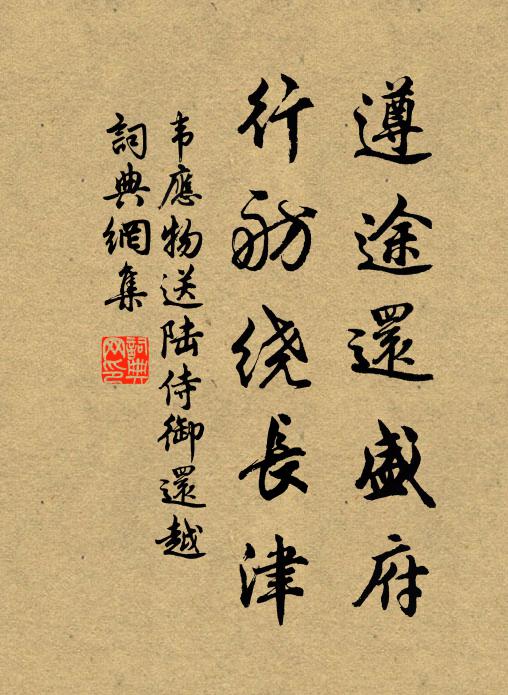 遵途還盛府
行舫绕長津
韦應物送陆侍御還越
詞典網集
詞典网印